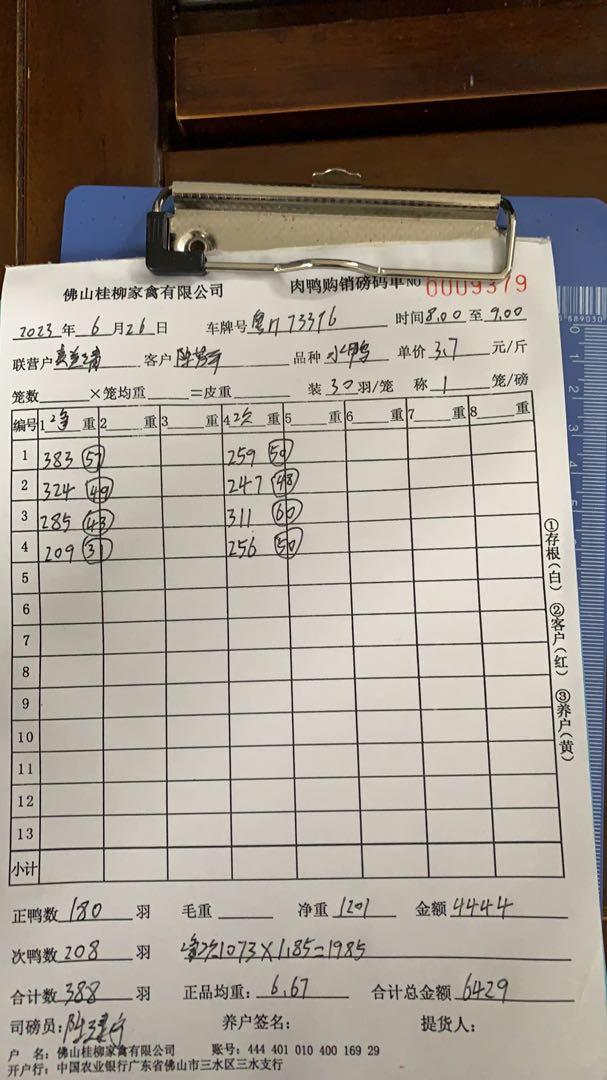 佛山桂柳家禽有限公司 肉鸭购销磅码单 NO 0009379
2023 年 6 月 26 日 车牌号 粤 73376 时间 8.00 至 9.00
联营户 客户 品种 水鸭 单价 3.7 元/斤
笼数 ×笼均重 =皮重 装 30 羽/笼 称 1 笼/磅
编号 1 净 重 2 重 3 重 4 次 重 5 重 6 重 7 重 8 重
1 383 57 259 50
2 324 49 247 48
3 285 43 311 60
4 209 31 256 50
5
6
7
8
9
10
11
12
13
小计
正鸭数 180 羽 毛重 净重 1201 金额 4444
次鸭数 208 羽 净次1073×1.85=1985
合计数 388 羽 正品均重: 6.67 合计总金额 6429
司磅员: 养户签名: 提货人:
户 名: 佛山桂柳家禽有限公司 账号: 444 401 010 400 169 29
开户行: 中国农业银行广东省佛山市三水区三水支行
①存根(白) ②客户(红) ③养户(黄)
889030
0
1
2
3